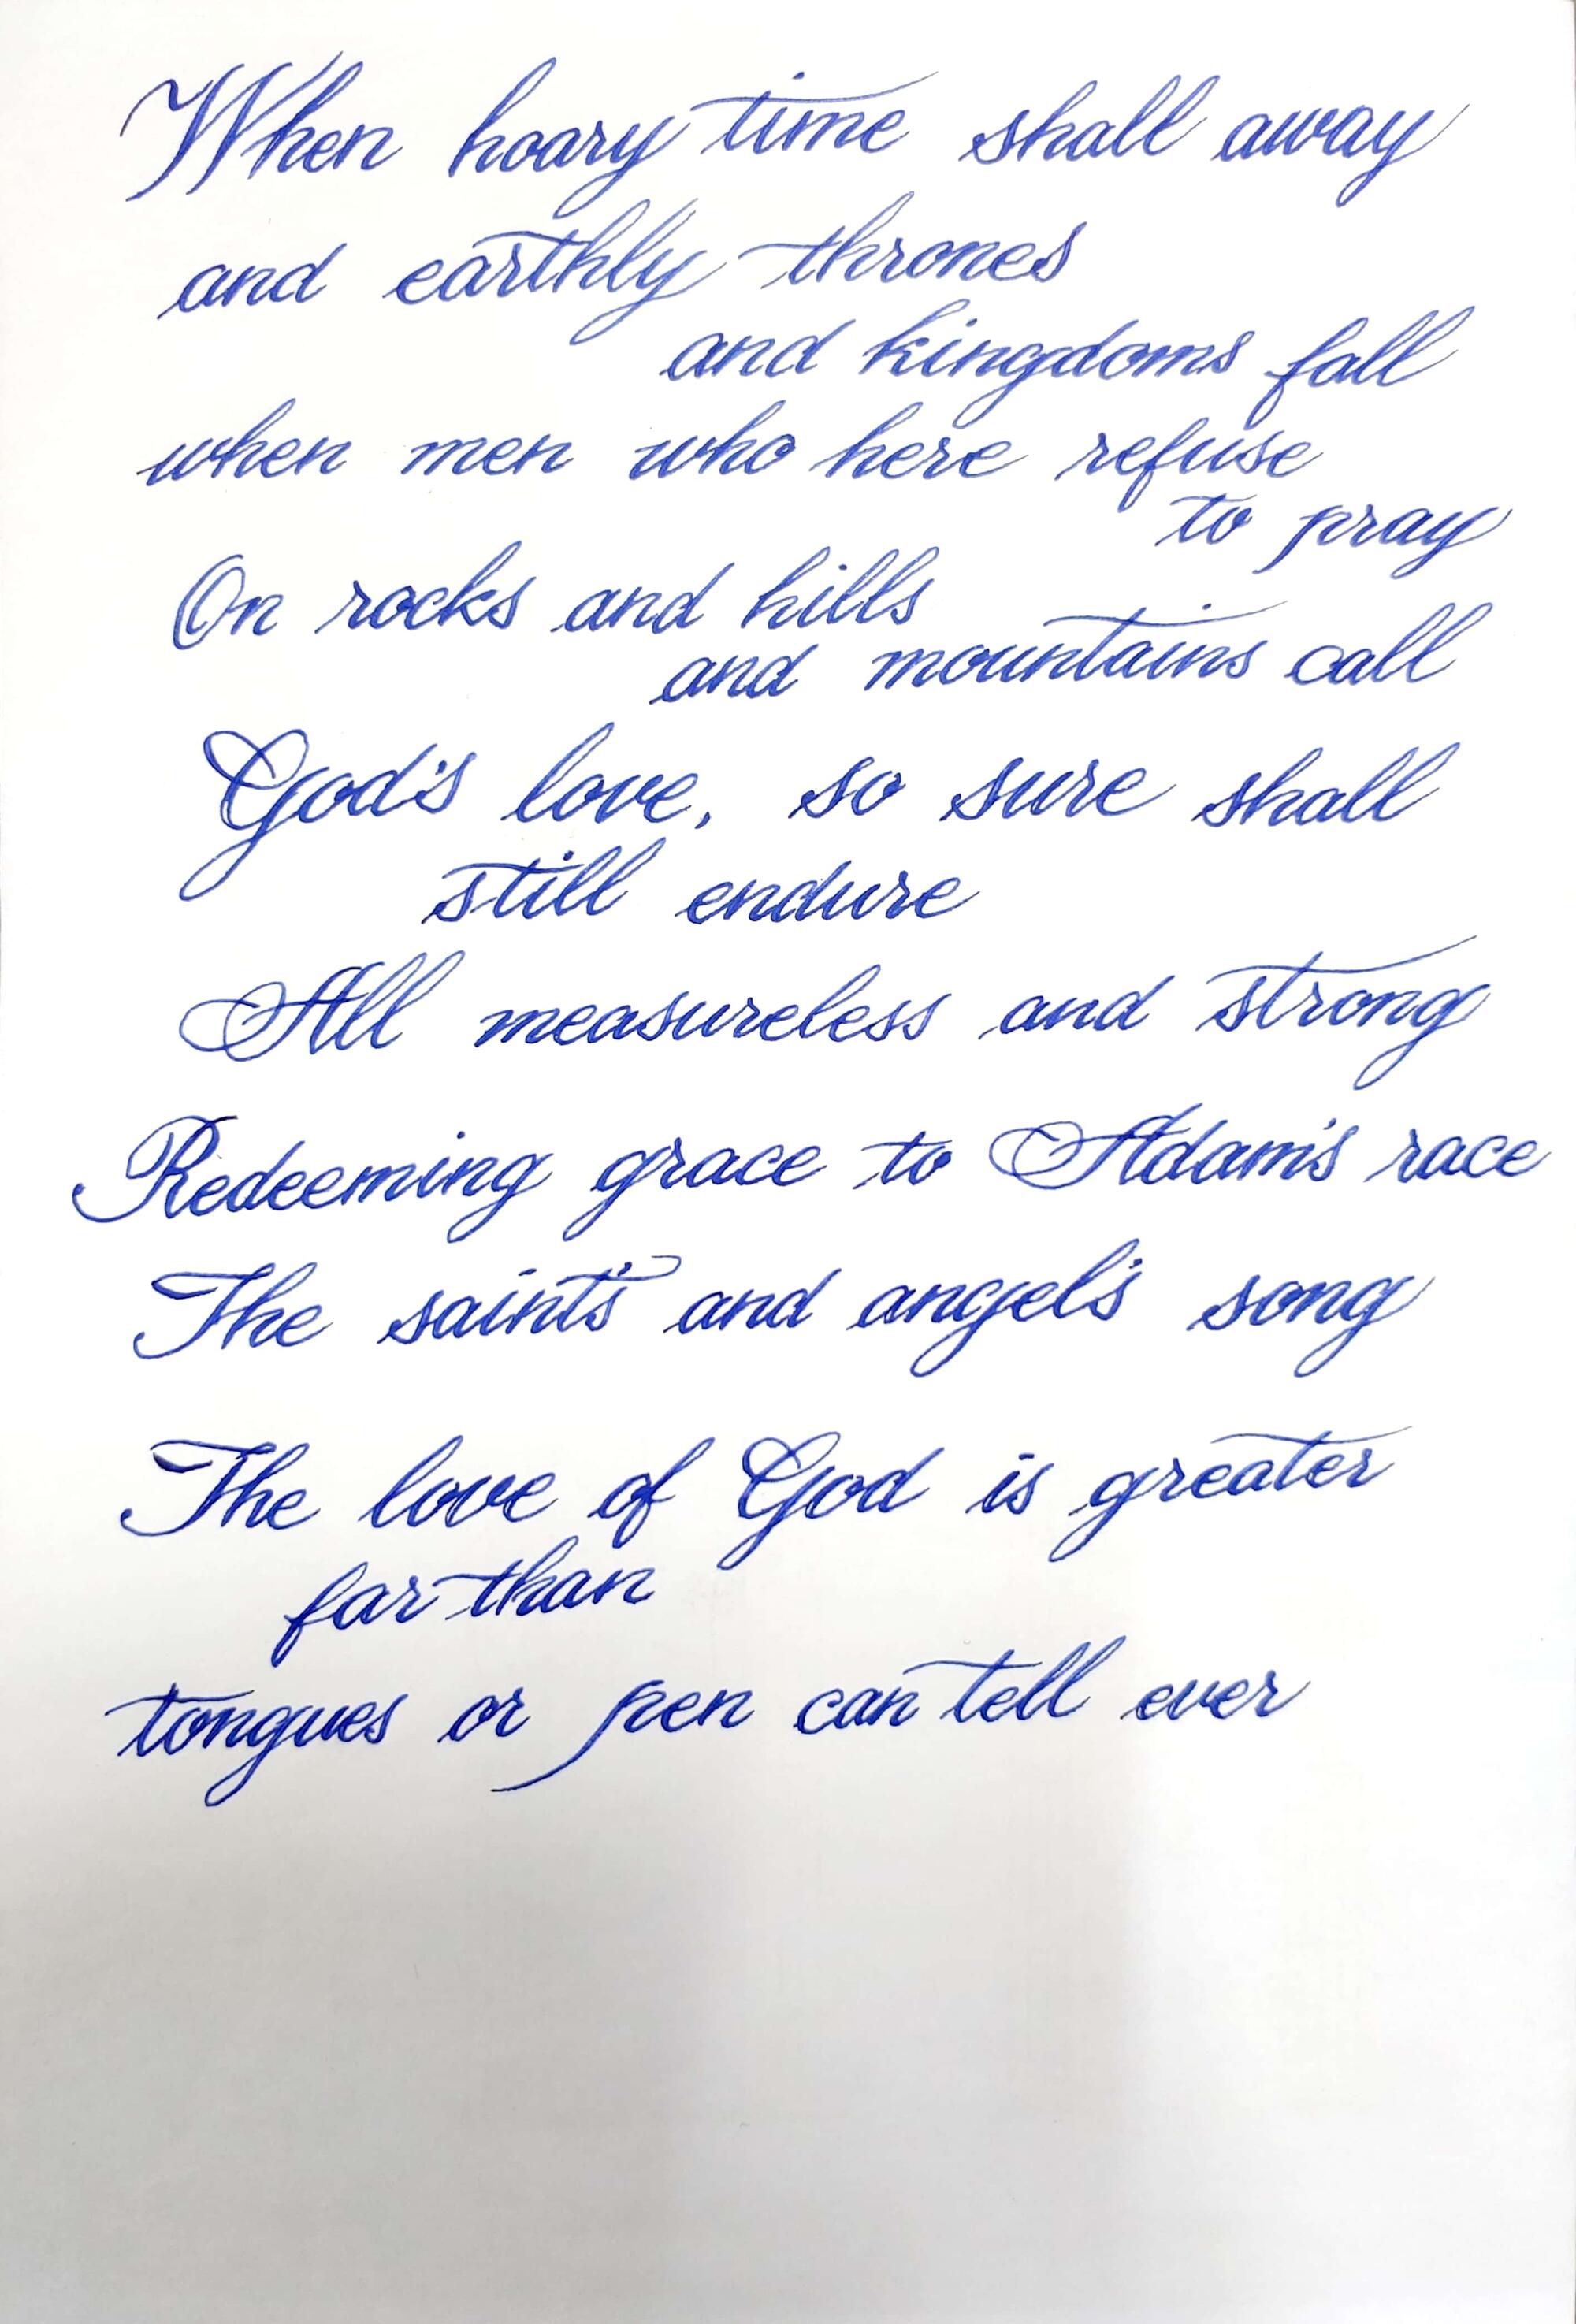 When hoary time shall away
and earthly thrones
and kingdoms fall
when men who here refuse
to pray
On rocks and hills
and mountains call
God's love, so sure shall
still endure
All measureless and strong
Redeeming grace to Adam's race
The saint's and angel's song
The love of God is greater
far than
tongues or pen can tell ever